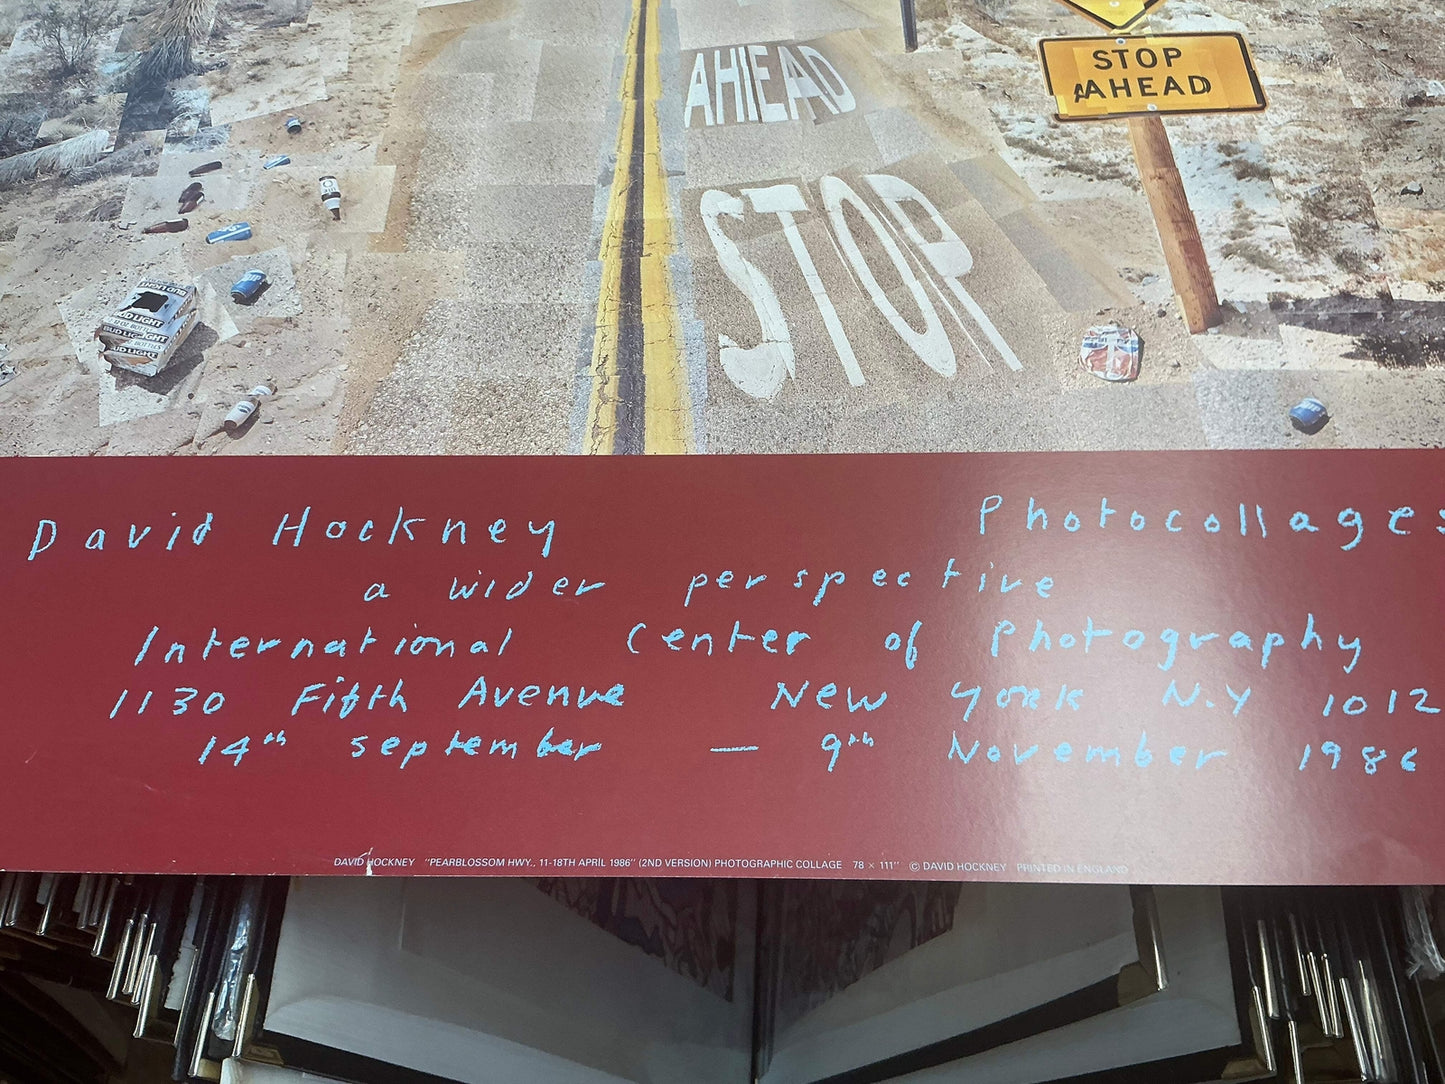 AHEAD
STOP
STOP
AHEAD
BUD LIGHT
BUD LIGHT
David Hockney Photocollages
a wider perspective
International Center of Photography
1130 Fifth Avenue New York N.Y 1012
14th september — 9th November 1986
DAVID HOCKNEY "PEARBLOSSOM HWY., 11-18TH APRIL 1986" (2ND VERSION) PHOTOGRAPHIC COLLAGE 78 × 111" © DAVID HOCKNEY PRINTED IN ENGLAND